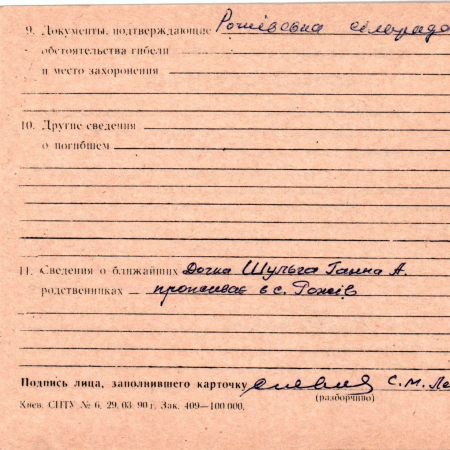 9. Документы, подтверждающие Рожівська сільрада
обстоятельства гибели
и место захоронения
10. Другие сведения
о погибшем
11. Сведения о ближайших Дочка Шульга Ганна А.
родственниках проживає в с. Рожів
Подпись лица, заполнившего карточку С. М.
(разборчиво)
Киев. СПТУ № 6. 29. 03. 90 г. Зак. 409—100 000.